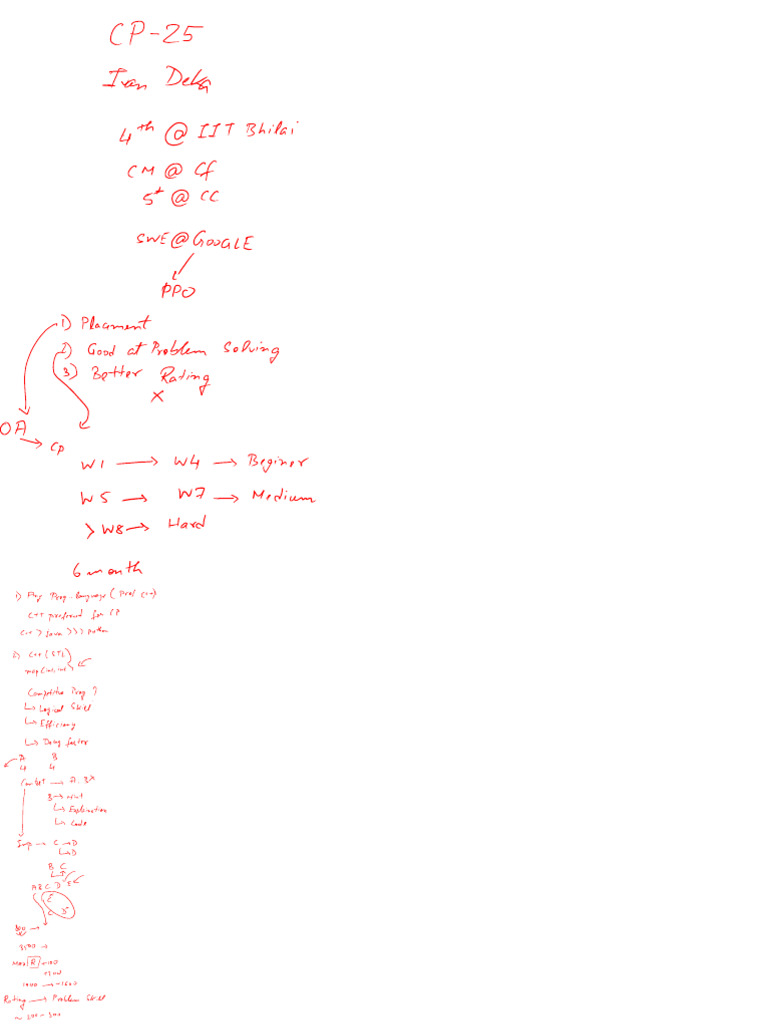 CP-25
Ivan Deka
4th @ IIT Bhilai
CM @ Cf
5* @ CC
SWE @ GOOGLE
PPO
1) Placment
2) Good at Problem Solving
3) Better Rating
X
OA → CP
W1 → W4 → Beginer
W5 → W7 → Medium
> W8 → Hard
6 month
1) Any Prog. language (Pref C++)
C++ preferred for CP
C++ > Java >>> Python
2) C++ (STL)
map<int,int>
Competitive Prog ?
↳ Logical Skill
↳ Efficiency
↳ Doing faster
A B
4 4
Contest → A, BX
B → hint
↳ Explanation
↳ Code
Imp → C → D
↳ D
B C
A B C D E
E
C D
800 →
3500 →
Max R -100
1400 → 1600
Rating → Problem Skill
~ 300 - 500